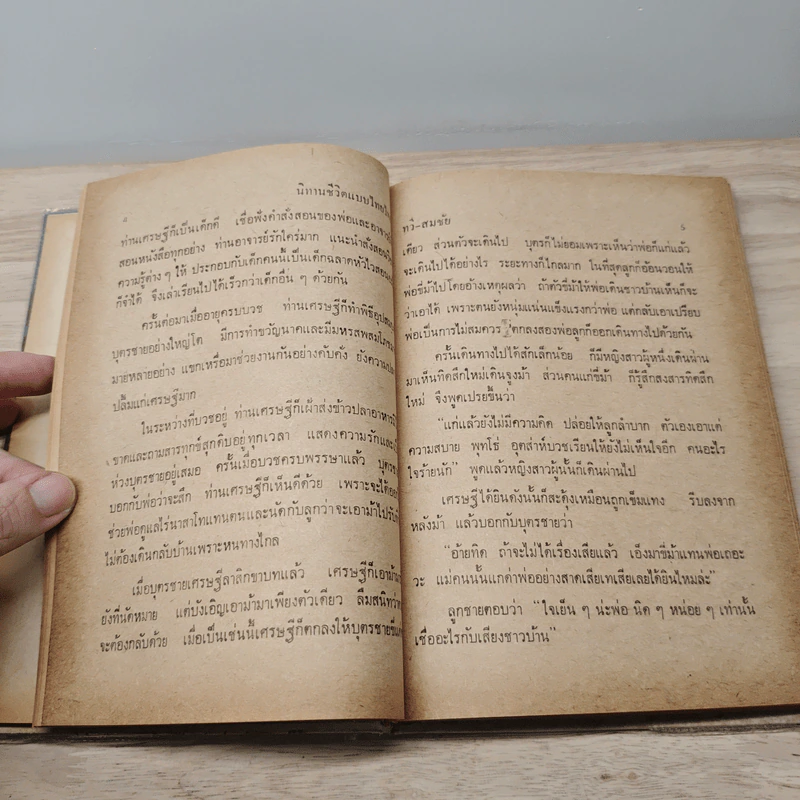 ๔
นิทานชีวิตแบบไทย
ท่านเศรษฐีก็เป็นเด็กดี เชื่อฟังคำสั่งสอนของพ่อและอาจารย์
สอนหนังสือทุกอย่าง ท่านอาจารย์รักใคร่มาก แนะนำสั่งสอน
ความรู้ต่าง ๆ ให้ ประกอบกับเด็กคนนี้เป็นเด็กฉลาดหัวไวสอน
ก็จำได้ จึงเล่าเรียนไปได้เร็วกว่าเด็กอื่น ๆ ด้วยกัน
ครั้นต่อมาเมื่ออายุครบบวช ท่านเศรษฐีก็ทำพิธี
บุตรชายอย่างใหญ่โต มีการทำขวัญนาคและมีมหรสพสมโภช
มายหลายอย่าง แขกเหรื่อมาช่วยงานกันอย่างคับคั่ง ยังความ
ปลื้มแก่เศรษฐีมาก
ในระหว่างที่บวชอยู่ ท่านเศรษฐีก็เฝ้าส่งข้าวปลาอาหาร
ขาดและถามสารทุกข์สุกดิบอยู่ทุกเวลา แสดงความรักและ
ห่วงบุตรชายอยู่เสมอ ครั้นเมื่อบวชครบพรรษาแล้ว
บอกกับพ่อว่าจะสึก ท่านเศรษฐีก็เห็นดีด้วย เพราะจะได้
ช่วยพ่อดูแลไร่นาสาโทแทนตนและนัดกับลูกว่าจะเอาม้าไปรับ
ไม่ต้องเดินกลับบ้านเพราะหนทางไกล
เมื่อบุตรชายเศรษฐีลาสิกขาบทแล้ว เศรษฐีก็เอาม้า
ยังที่นัดหมาย แต่บังเอิญเอาม้ามาเพียงตัวเดียว ลืมสนิทว่า
จะต้องกลับด้วย เมื่อเป็นเช่นนี้เศรษฐีก็ตกลงให้บุตรชายขี่
ทวี-สมชัย
๕
เดียว ส่วนตัวจะเดินไป บุตรก็ไม่ยอมเพราะเห็นว่าพ่อก็แก่แล้ว
จะเดินไปได้อย่างไร ระยะทางก็ไกลมาก ในที่สุดลูกก็อ้อนวอนให้
พ่อขี่ม้าไปโดยอ้างเหตุผลว่า ถ้าตัวขี่ม้าให้พ่อเดินชาวบ้านเห็นก็จะ
ว่าเอาได้ เพราะตนยังหนุ่มแน่นแข็งแรงกว่าพ่อ แต่กลับเอาเปรียบ
พ่อเป็นการไม่สมควร ตกลงสองพ่อลูกก็ออกเดินทางไปด้วยกัน
ครั้นเดินทางไปได้สักเล็กน้อย ก็มีหญิงสาวผู้หนึ่งเดินผ่าน
มาเห็นทิดสึกใหม่เดินจูงม้า ส่วนคนแก่ขี่ม้า ก็รู้สึกสงสารทิดสึก
ใหม่ จึงพูดเปรยขึ้นว่า
“แก่แล้วยังไม่มีความคิด ปล่อยให้ลูกลำบาก ตัวเองเอาแต่
ความสบาย พุทโธ่ อุตส่าห์บวชเรียนให้ยังไม่เห็นใจอีก คนอะไร
ใจร้ายนัก” พูดแล้วหญิงสาวผู้นั้นก็เดินผ่านไป
เศรษฐีได้ยินดังนั้นก็สะดุ้งเหมือนถูกเข็มแทง รีบลงจาก
หลังม้า แล้วบอกกับบุตรชายว่า
“อ้ายทิด ถ้าจะไม่ได้เรื่องเสียแล้ว เอ็งมาขี่ม้าแทนพ่อเถอะ
วะ แม่คนนั้นแกด่าพ่ออย่างสาดเสียเทเสียเลยได้ยินไหมล่ะ”
ลูกชายตอบว่า “ใจเย็น ๆ น่ะพ่อ นิด ๆ หน่อย ๆ เท่านั้น
เชื่ออะไรกับเสียงชาวบ้าน”